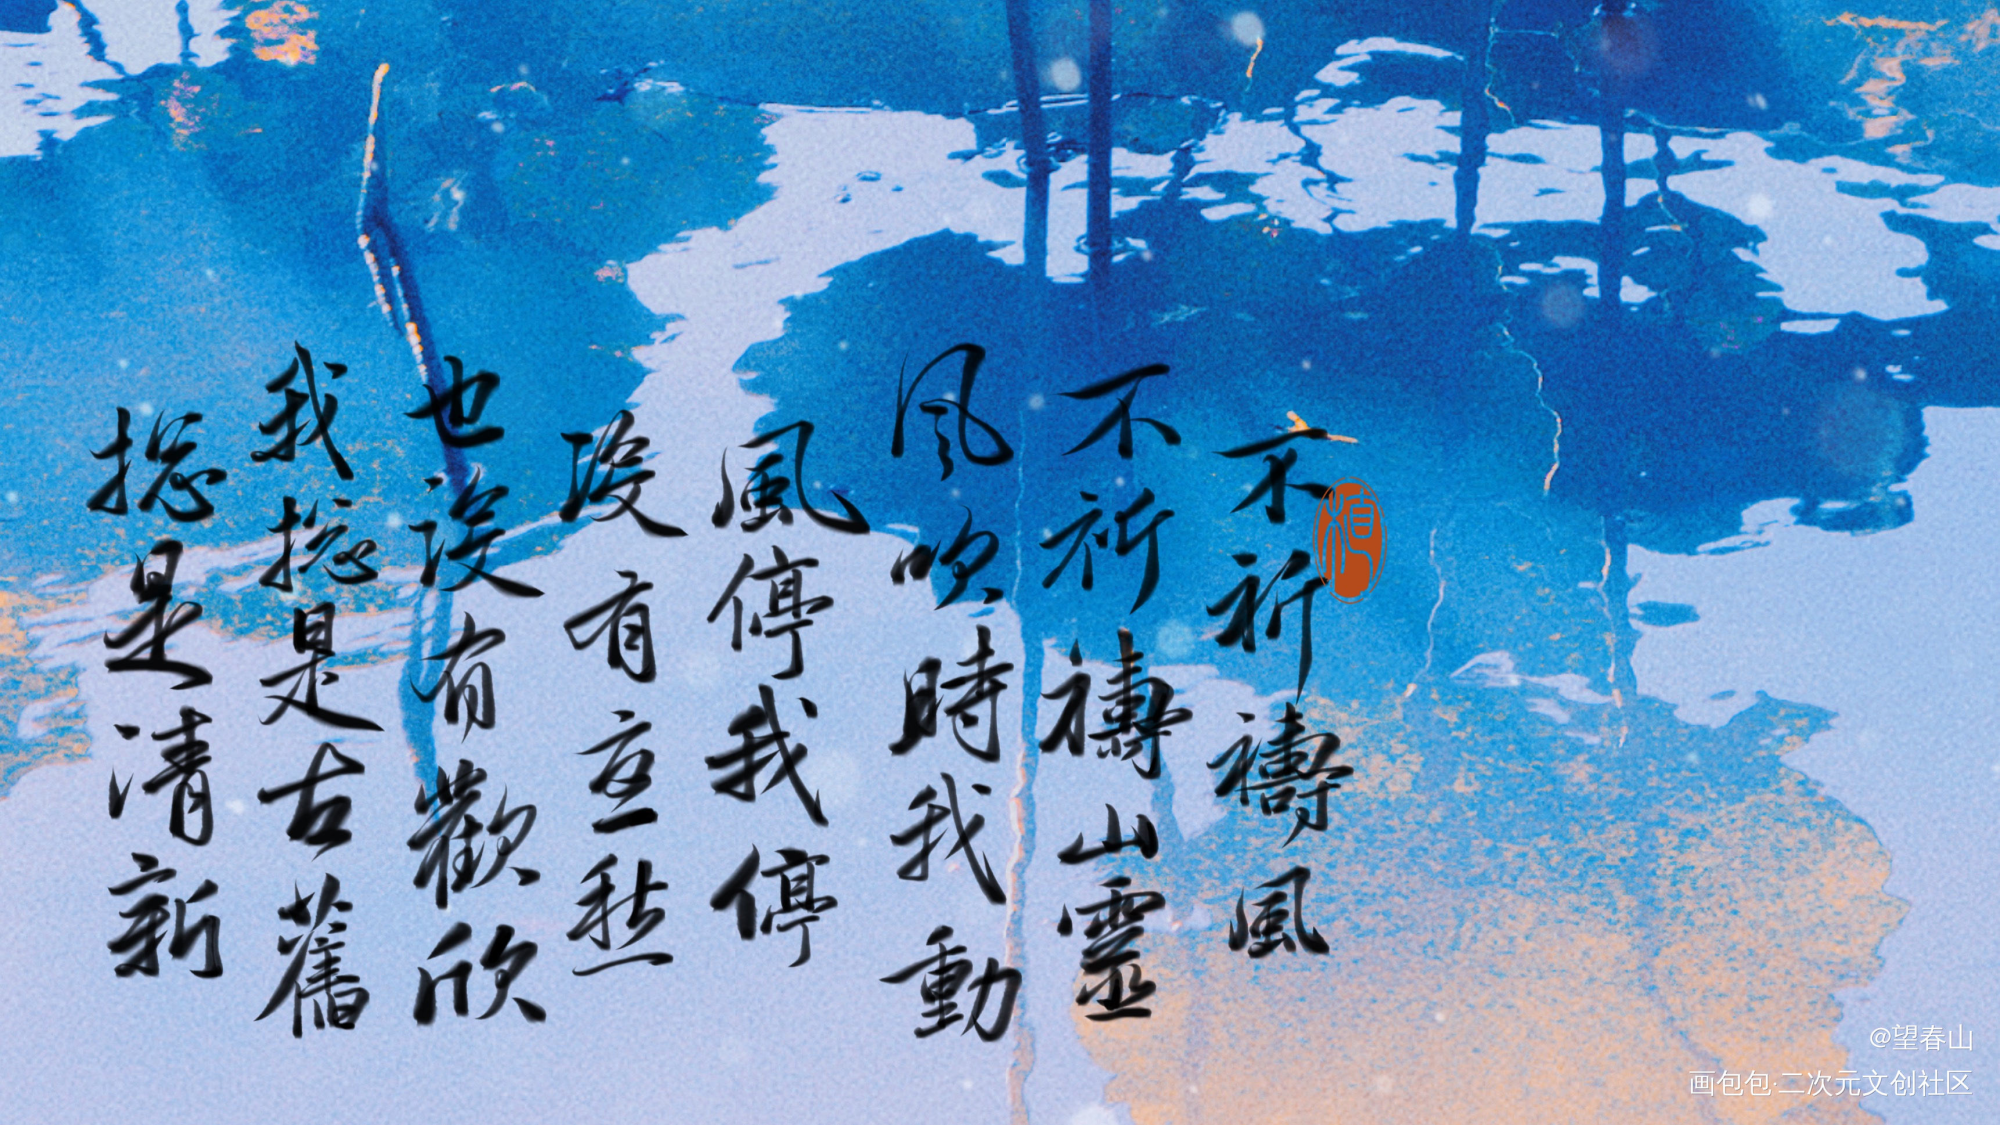 不祈禱風
不祈禱山靈
風吹時我動
風停我停
沒有愁
也沒有歡欣
我捴是古舊
捴是清新
@望春山
画包包·二次元文创社区